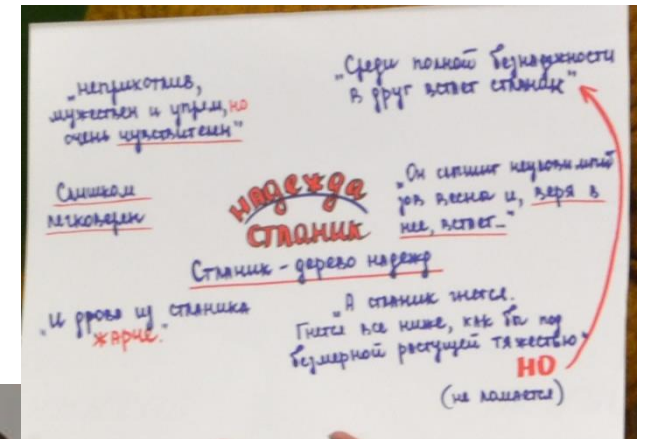 „неприхотлив,
мужествен и упрям, но
очень чувствителен"
„Среди полной безнадежности
в друг встает стланик"
Слишком
легковерен
надежда
стланик
„Он слышит неуловимый
зов весны и, веря в
нее, встает..."
Стланик - дерево надежд
„и дрова из стланика
жарче."
„А стланик гнется.
Гнется все ниже, как бы под
безмерной растущей тяжестью"
НО
(не ломается)